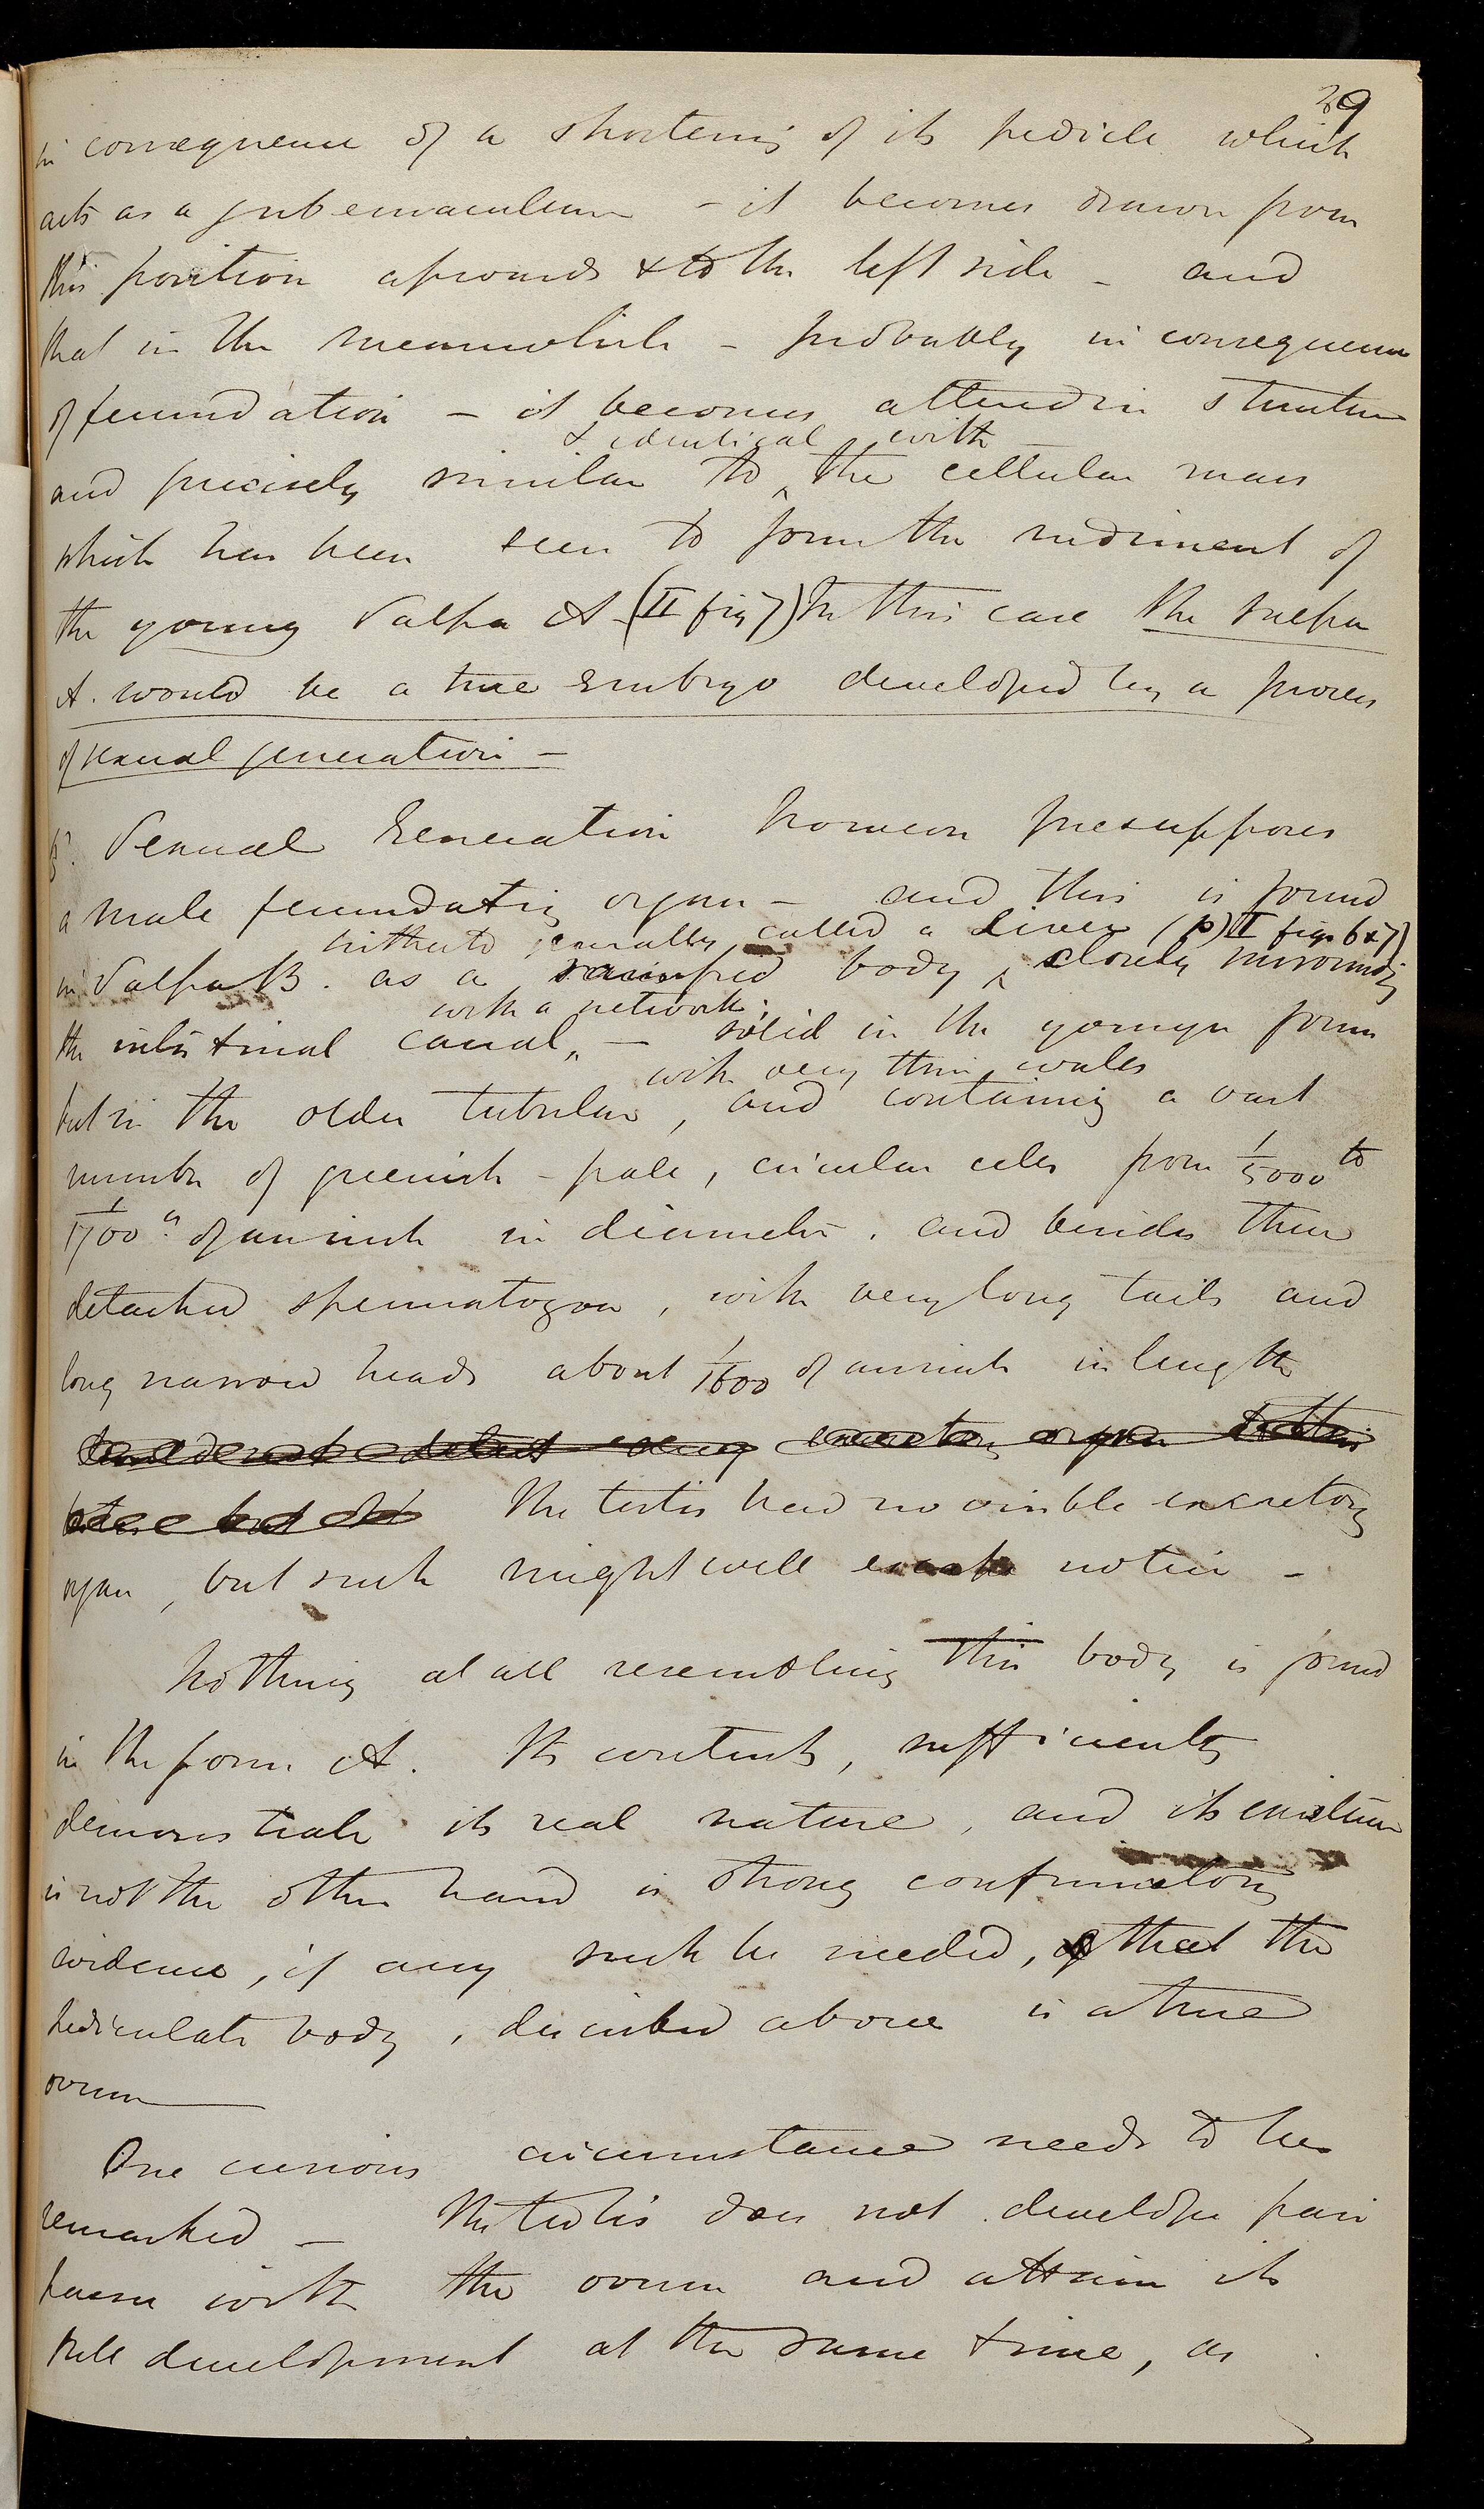 29
in consequence of a shortening of its pedicle which
acts as a gubernaculum – it becomes drawn from
this position upwards & to the left side – and
that in the meanwhile – probably in consequence
of fecundation – it becomes altered in structure
& identical with
and precisely similar to ‸ the cellular mass
which has been seen to form the rudiment of
the young Salpa A (II fig 7) In this case the Salpa
A. would be a true Embryo developed by a process
of sexual generation –
Sexual Generation however presupposes
a male fecundating organ – and this is found
hitherto generally called a Liver (p) II figs 6 & 7)
in Salpa B. as a ramified body ‸ closely surrounding
with a network;
the intestinal canal, – solid in the younger forms
with very thin walls
but in the older tubular, and containing a vast
number of greenish-pale, circular cells from 1/5000 to
1/1700 of an inch in diameter. and besides these
detached spermatozoa, with very long tails and
long narrow heads about 1/1600 of an inch in length
The testis had no visible excretory
organ, but such might well escape notice –
Nothing at all resembling this body is found
in the form A. Its contents, sufficiently
demonstrate its real nature, and its existence
on the other hand is strong confirmatory
evidence, if any such be needed, that the
pediculate body, described above is a true
ovum
One curious circumstance needs to be
remarked – The testis does not develope pari
passu with the ovum and attain its
full development at the same time, as